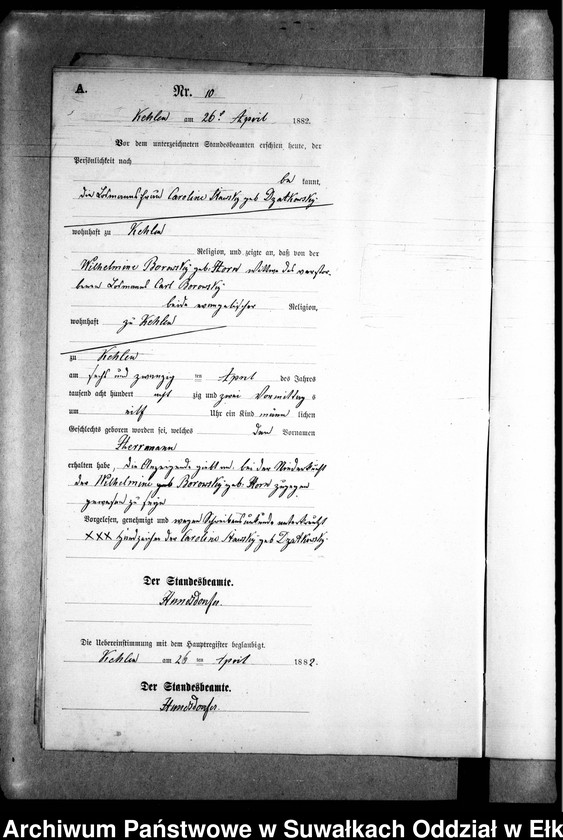 A.
Nr. 10
Kehlen am 26t April 1882.
Vor dem unterzeichneten Standesbeamten erschien heute, der
Persönlichkeit nach
be kannt,
die Losmannsfrau Caroline geb Dzatkowsky
wohnhaft zu Kehlen
Religion, und zeigte an, daß von der
Wilhelmine Borowsky geb. Horn Wittwe des verstor-
benen Losmanns Carl Borowsky
beide evangelischer Religion,
wohnhaft zu Kehlen
zu Kehlen
am sechs und zwanzig ten April des Jahres
tausend acht hundert acht zig und zwei Vormittag s
um elf Uhr ein Kind männ lichen
Geschlechts geboren worden sei, welches den Vornamen
Herrmann
erhalten habe, die Anzeigende giebt an, bei der Niederkunft
der Wilhelmine Borowsky geb. Horn zugegen
gewesen zu sein
Vorgelesen, genehmigt und wegen Schreibensunkunde unterkreuzt
XXX Handzeichen der Caroline geb Dzatkowsky
Der Standesbeamte.
Die Uebereinstimmung mit dem Hauptregister beglaubigt.
Kehlen am 26 ten April 1882.
Der Standesbeamte.
Archiwum Państwowe w Suwałkach Oddział w Ełk